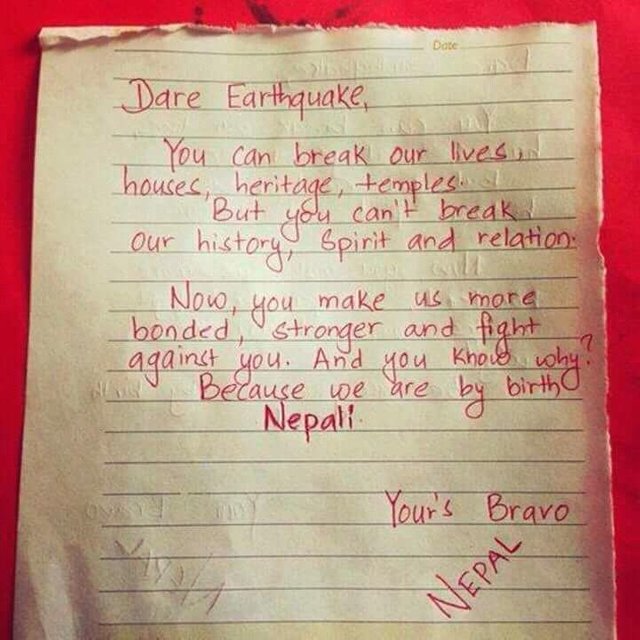 Date
Dare Earthquake,
You can break our lives,
houses, heritage, temples.
But you can't break
our history, Spirit and relation.
Now, you make us more
bonded, stronger and fight
against you. And you know why?
Because we are by birth
Nepali.
Your's Bravo
NEPAL